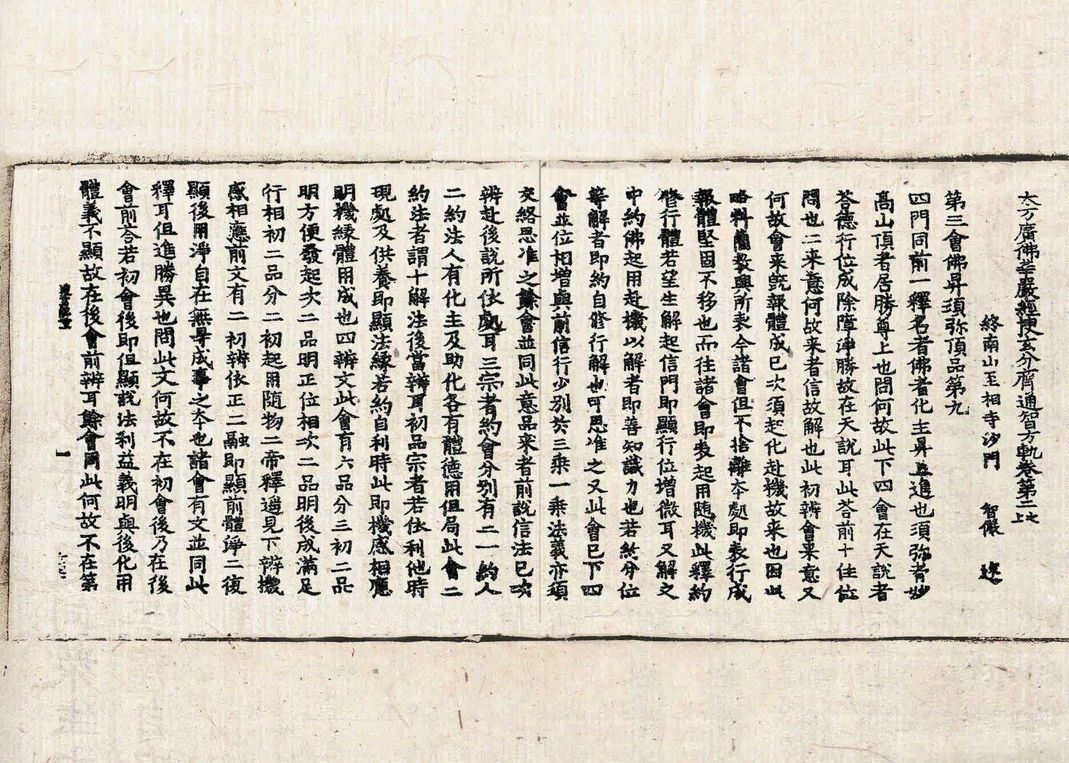 大方廣佛華嚴經搜玄分齊通智方軌卷第二之上
終南山至相寺沙門 智儼 述
第三會佛昇須弥頂品第九
四門同前一釋名者佛者化主昇者進也須弥者妙
高山頂者居勝尊上也問何故此下四會在天說者
荅德行位成除障淨勝故在天說耳此荅前十住位
問也二来意何故来者信故解也此初辨會来意又
何故會来既報體成已次須起化赴機故来也因此
略料蕳教興所表今諸會但不捨離本處即表行成
報體堅固不移也而往諸會即表起用随機此釋約
修行體若望生解起信門即顯行位增微耳又解文
中約佛起用赴機以解者即善知識力也若約分位
等解者即約自修行解也可思准之又此會已下四
會並位相增與前信行少別於三乘一乘法義亦須
交絡思准之餘會並同此意品来者前說信法已次
辨赴後說所依處耳三宗者約會分別有二一約人
二約法人有化主及助化各有體德用但局此會二
約法者謂十解法後當辨耳初品宗者若依利他時
現處及供養即顯法緣若約自利時此即機感相應
明機緣體用成也四辨文此會有六品分三初二品
明方便發起次二品明正位相次二品明後成滿足
行相初二品分二初起用随物二帝釋遥見下辨機
感相應前文有二初辨依正二融即顯前體淨二復
顯後用淨自在無导成事之本也諸會有文並同此
釋耳但進勝異也問此文何故不在初會後乃在後
會前荅若初會後即但顯說法利益義明與後化用
體義不顯故在後會前辨耳餘會同此何故不在第
一